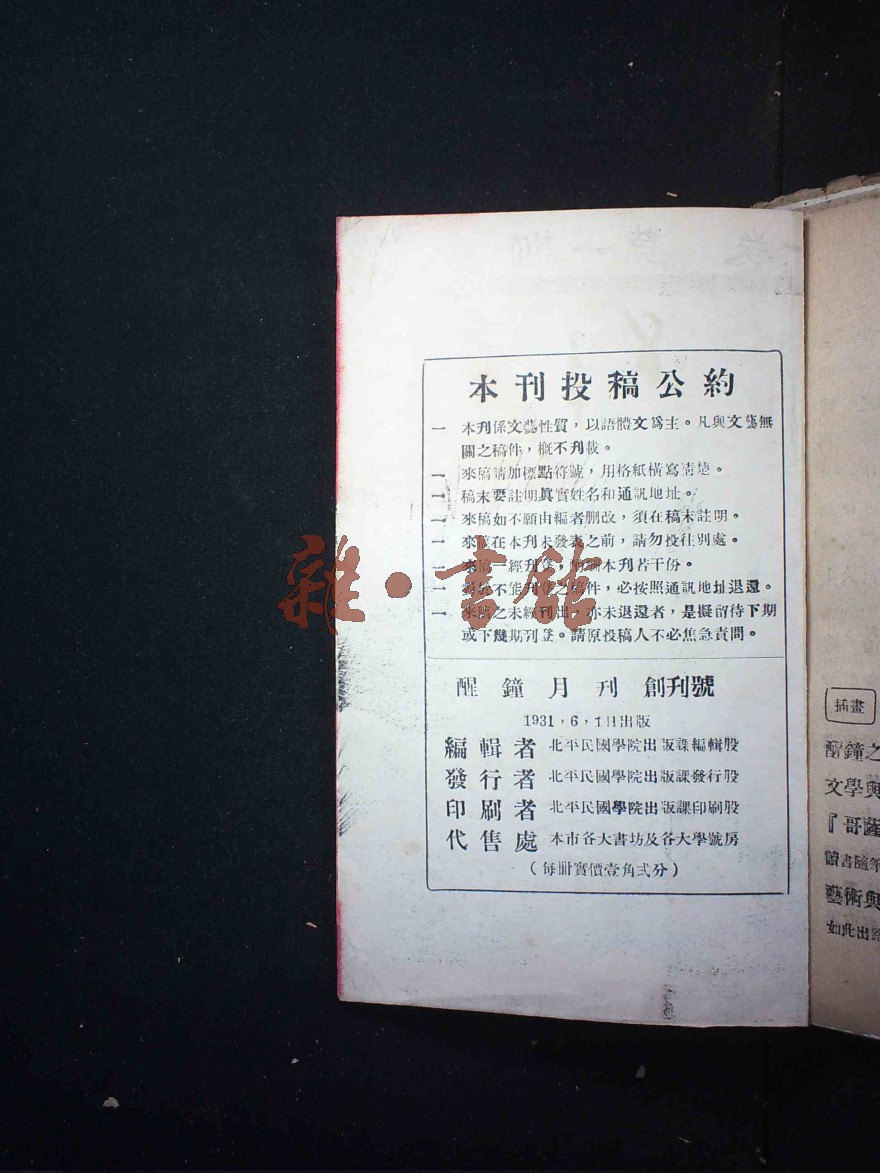 本刊投稿公約
一 本刊係文藝性質，以語體文爲主。凡與文藝無
關之稿件，概不刋載。
一 來稿請加標點符號，用格紙橫寫淸楚。
一 稿末要註明眞實姓名和通訊地址。
一 來稿如不願由編者删改，須在稿末註明。
一 來稿在本刋未發表之前，請勿投往別處。
一 來稿一經刋登，酬本刋若干份。
一 不能刋登之稿件，必按照通訊地址退還。
一 來稿之未經刋出，亦未退還者，是擬留待下期
或下幾期刋登。請原投稿人不必焦急責問。
醒鐘月刋 創刋號
1931，6，1日出版
編輯者 北平民國學院出版課編輯股
發行者 北平民國學院出版課發行股
印刷者 北平民國學院出版課印刷股
代售處 本市各大書坊及各大學號房
（每册實價壹角弍分）
雜·書館
插畫
醒鐘之
文學與
『哥薩
讀書隨筆
藝術與
如此出路